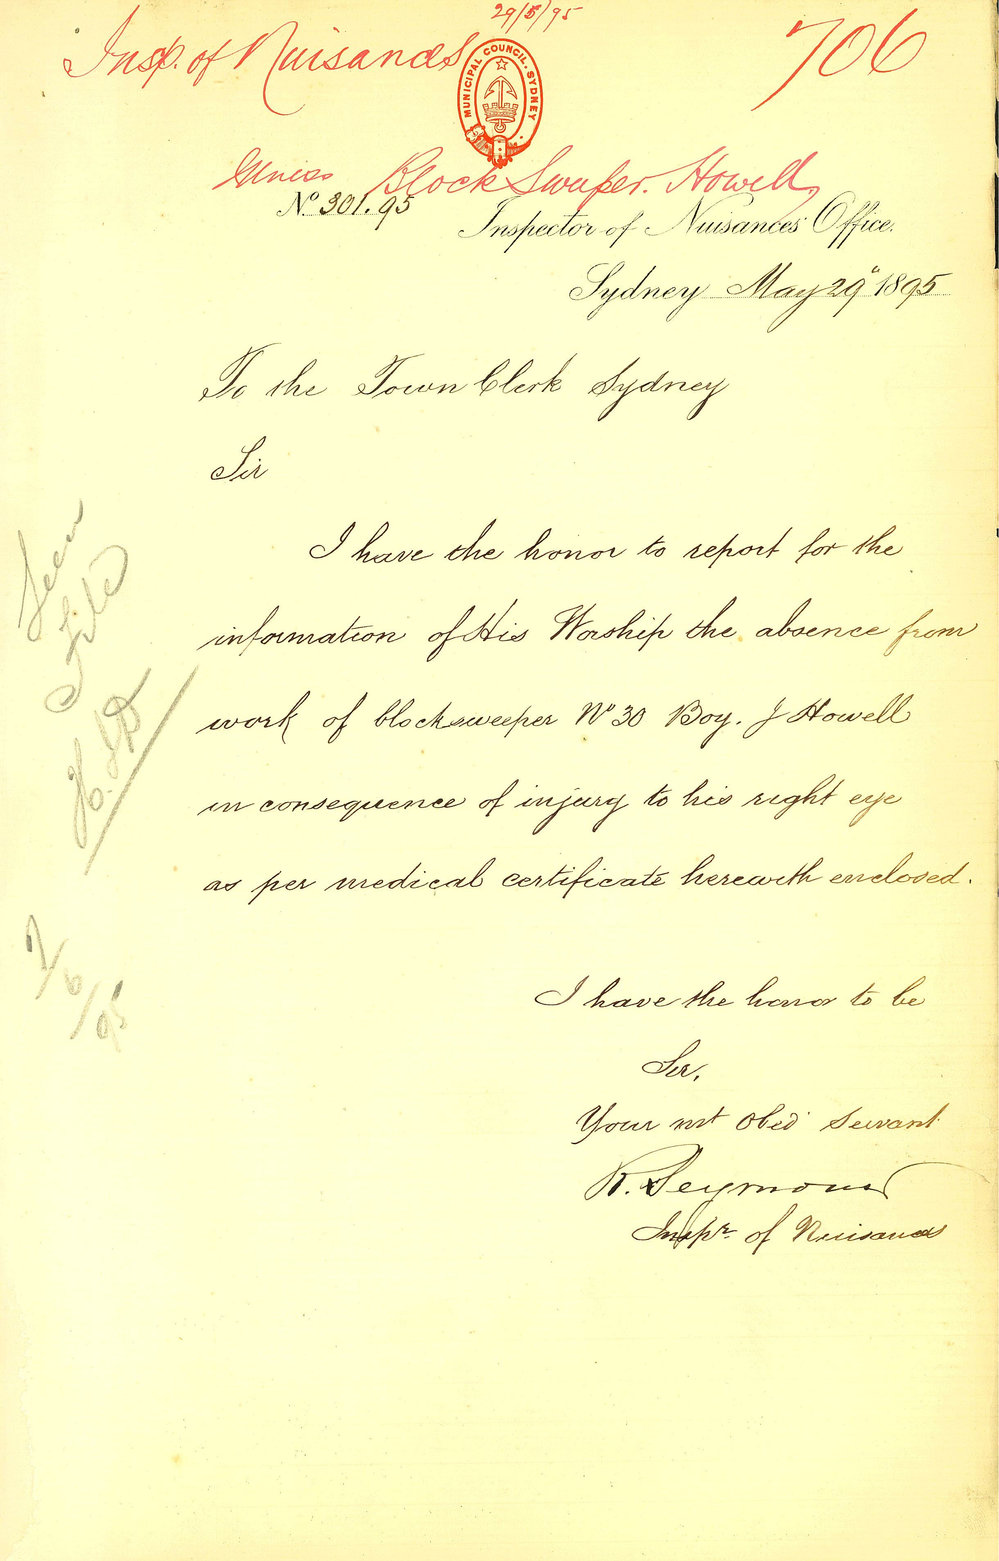 29/5/95
Insp. of Nuisances
706
MUNICIPAL COUNCIL. SYDNEY
Illness Block Sweeper. Howell,
No. 301.95
Inspector of Nuisances' Office.
Sydney May 29" 1895
To the Town Clerk Sydney
Sir
I have the honor to report for the
information of His Worship the absence from
work of blocksweeper No 30 Boy. J Howell
in consequence of injury to his right eye
as per medical certificate herewith enclosed.
I have the honor to be
Sir,
Your mt Obed Servant
R. Seymour
Inspr. of Nuisances
Seen
File
/6/95